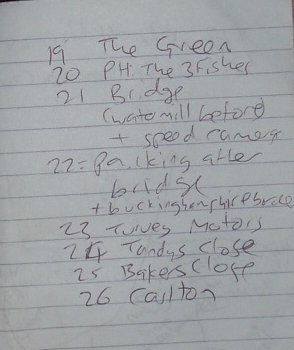 19 The Green
20 PH. The 3 Fishes
21 Bridge
(watermill before
+ speed camera
22 = Parking after
bridge
+ buckinghamshire
23 Motors
24 Tandys Close
25 Bakers Close
26 Carlton